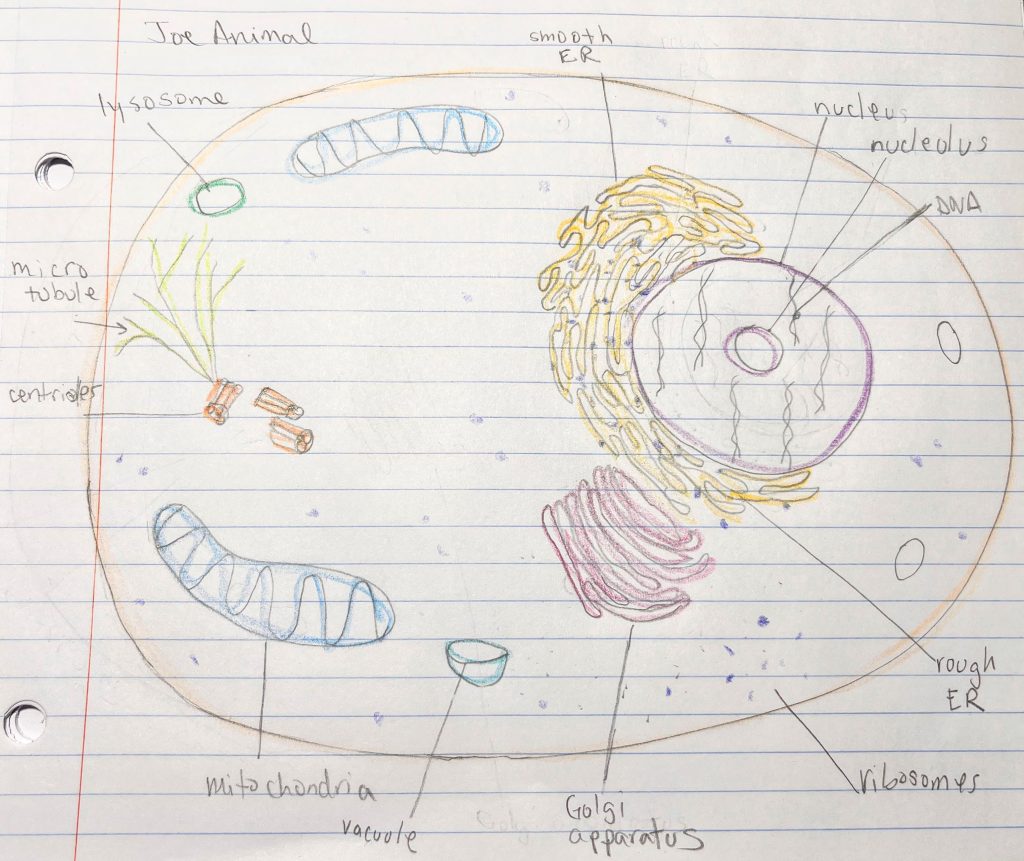 Joe Animal
smooth
ER
lysosome
nucleus
nucleolus
DNA
micro
tubule
centrioles
rough
ER
mitochondria
ribosomes
vacuole
Golgi
apparatus